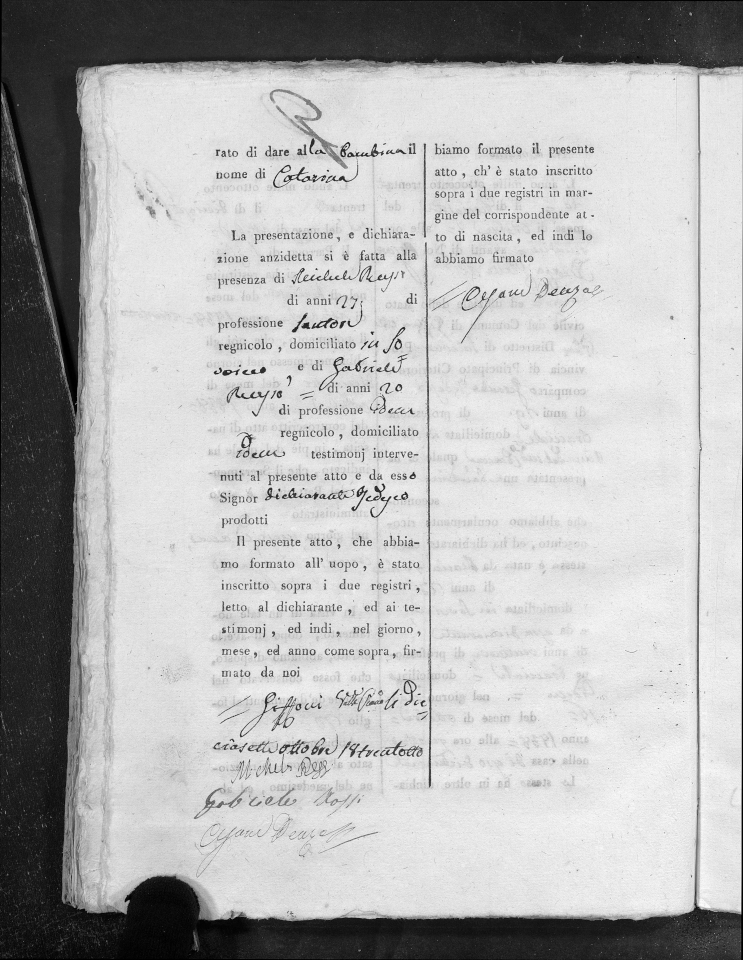 rato di dare alla Bambina il
nome di Catarina
La presentazione, e dichiara-
zione anzidetta si è fatta alla
presenza di
di anni 27 di
professione
regnicolo, domiciliato in So
e di Gabriele
= di anni 20
di professione Idem
regnicolo, domiciliato
Idem testimonj interve-
nuti al presente atto e da esso
Signor dichiarante
prodotti
Il presente atto, che abbia-
mo formato all'uopo, è stato
inscritto sopra i due registri,
letto al dichiarante, ed ai te-
stimonj, ed indi, nel giorno,
mese, ed anno come sopra, fir-
mato da noi
Giffoni Valle Piana li die=
ciasette ottobre 18trentotto
Gabriele
biamo formato il presente
atto, ch'è stato inscritto
sopra i due registri in mar-
gine del corrispondente at-
to di nascita, ed indi lo
abbiamo firmato